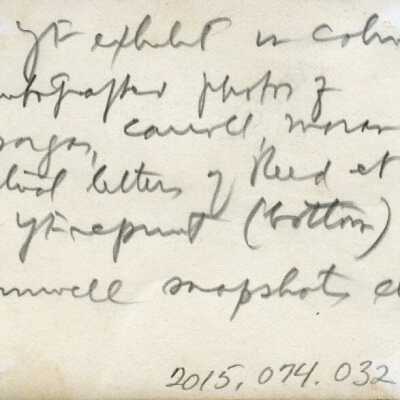 yt exhibit in Colum
autographed photos of
organ, Carroll, Moran
letters of Reed et
yt reprint (bottom)
snapshots
2015.074.032